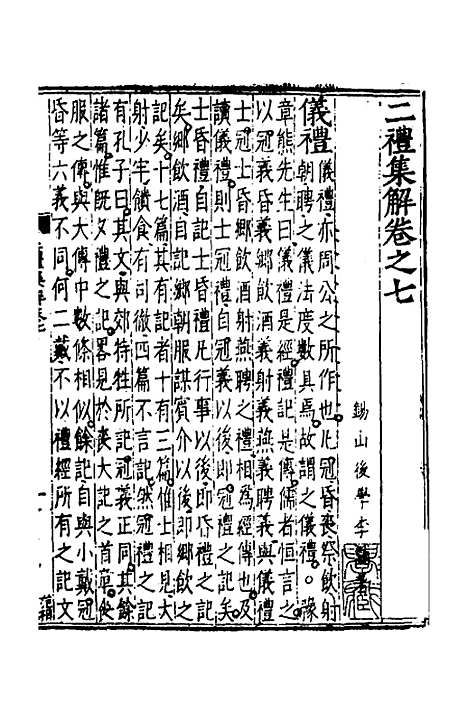 二禮集解卷之七
錫山後學李
儀禮 儀禮亦周公之所作也凡冠昏喪祭飲射
朝聘之儀法度數具焉故謂之儀禮。豫
章熊先生曰儀禮是經禮記是傳儒者恒言之
以冠義昏義鄉飲酒義射義燕義聘義與儀禮
士冠士昏鄉飲酒射燕聘之禮相為經傳也及
讀儀禮則士冠禮自冠義以後即冠禮之記矣
士昏禮自記士昏禮凡行事以後即昏禮之記
矣鄉飲酒自記鄉朝服謀賓介以後即鄉飲之
記矣十七篇其有記者十有三篇惟士相見大
射少牢饋食有司徹四篇不言記然冠禮之記
有孔子曰其文與郊特牲所記冠義正同其餘
諸篇惟既夕禮之記畧見於喪大記之首章喪
服之傳與大傳中數條相似餘記自與小戴冠
昏等六義不同何二戴不以禮經所有之記文